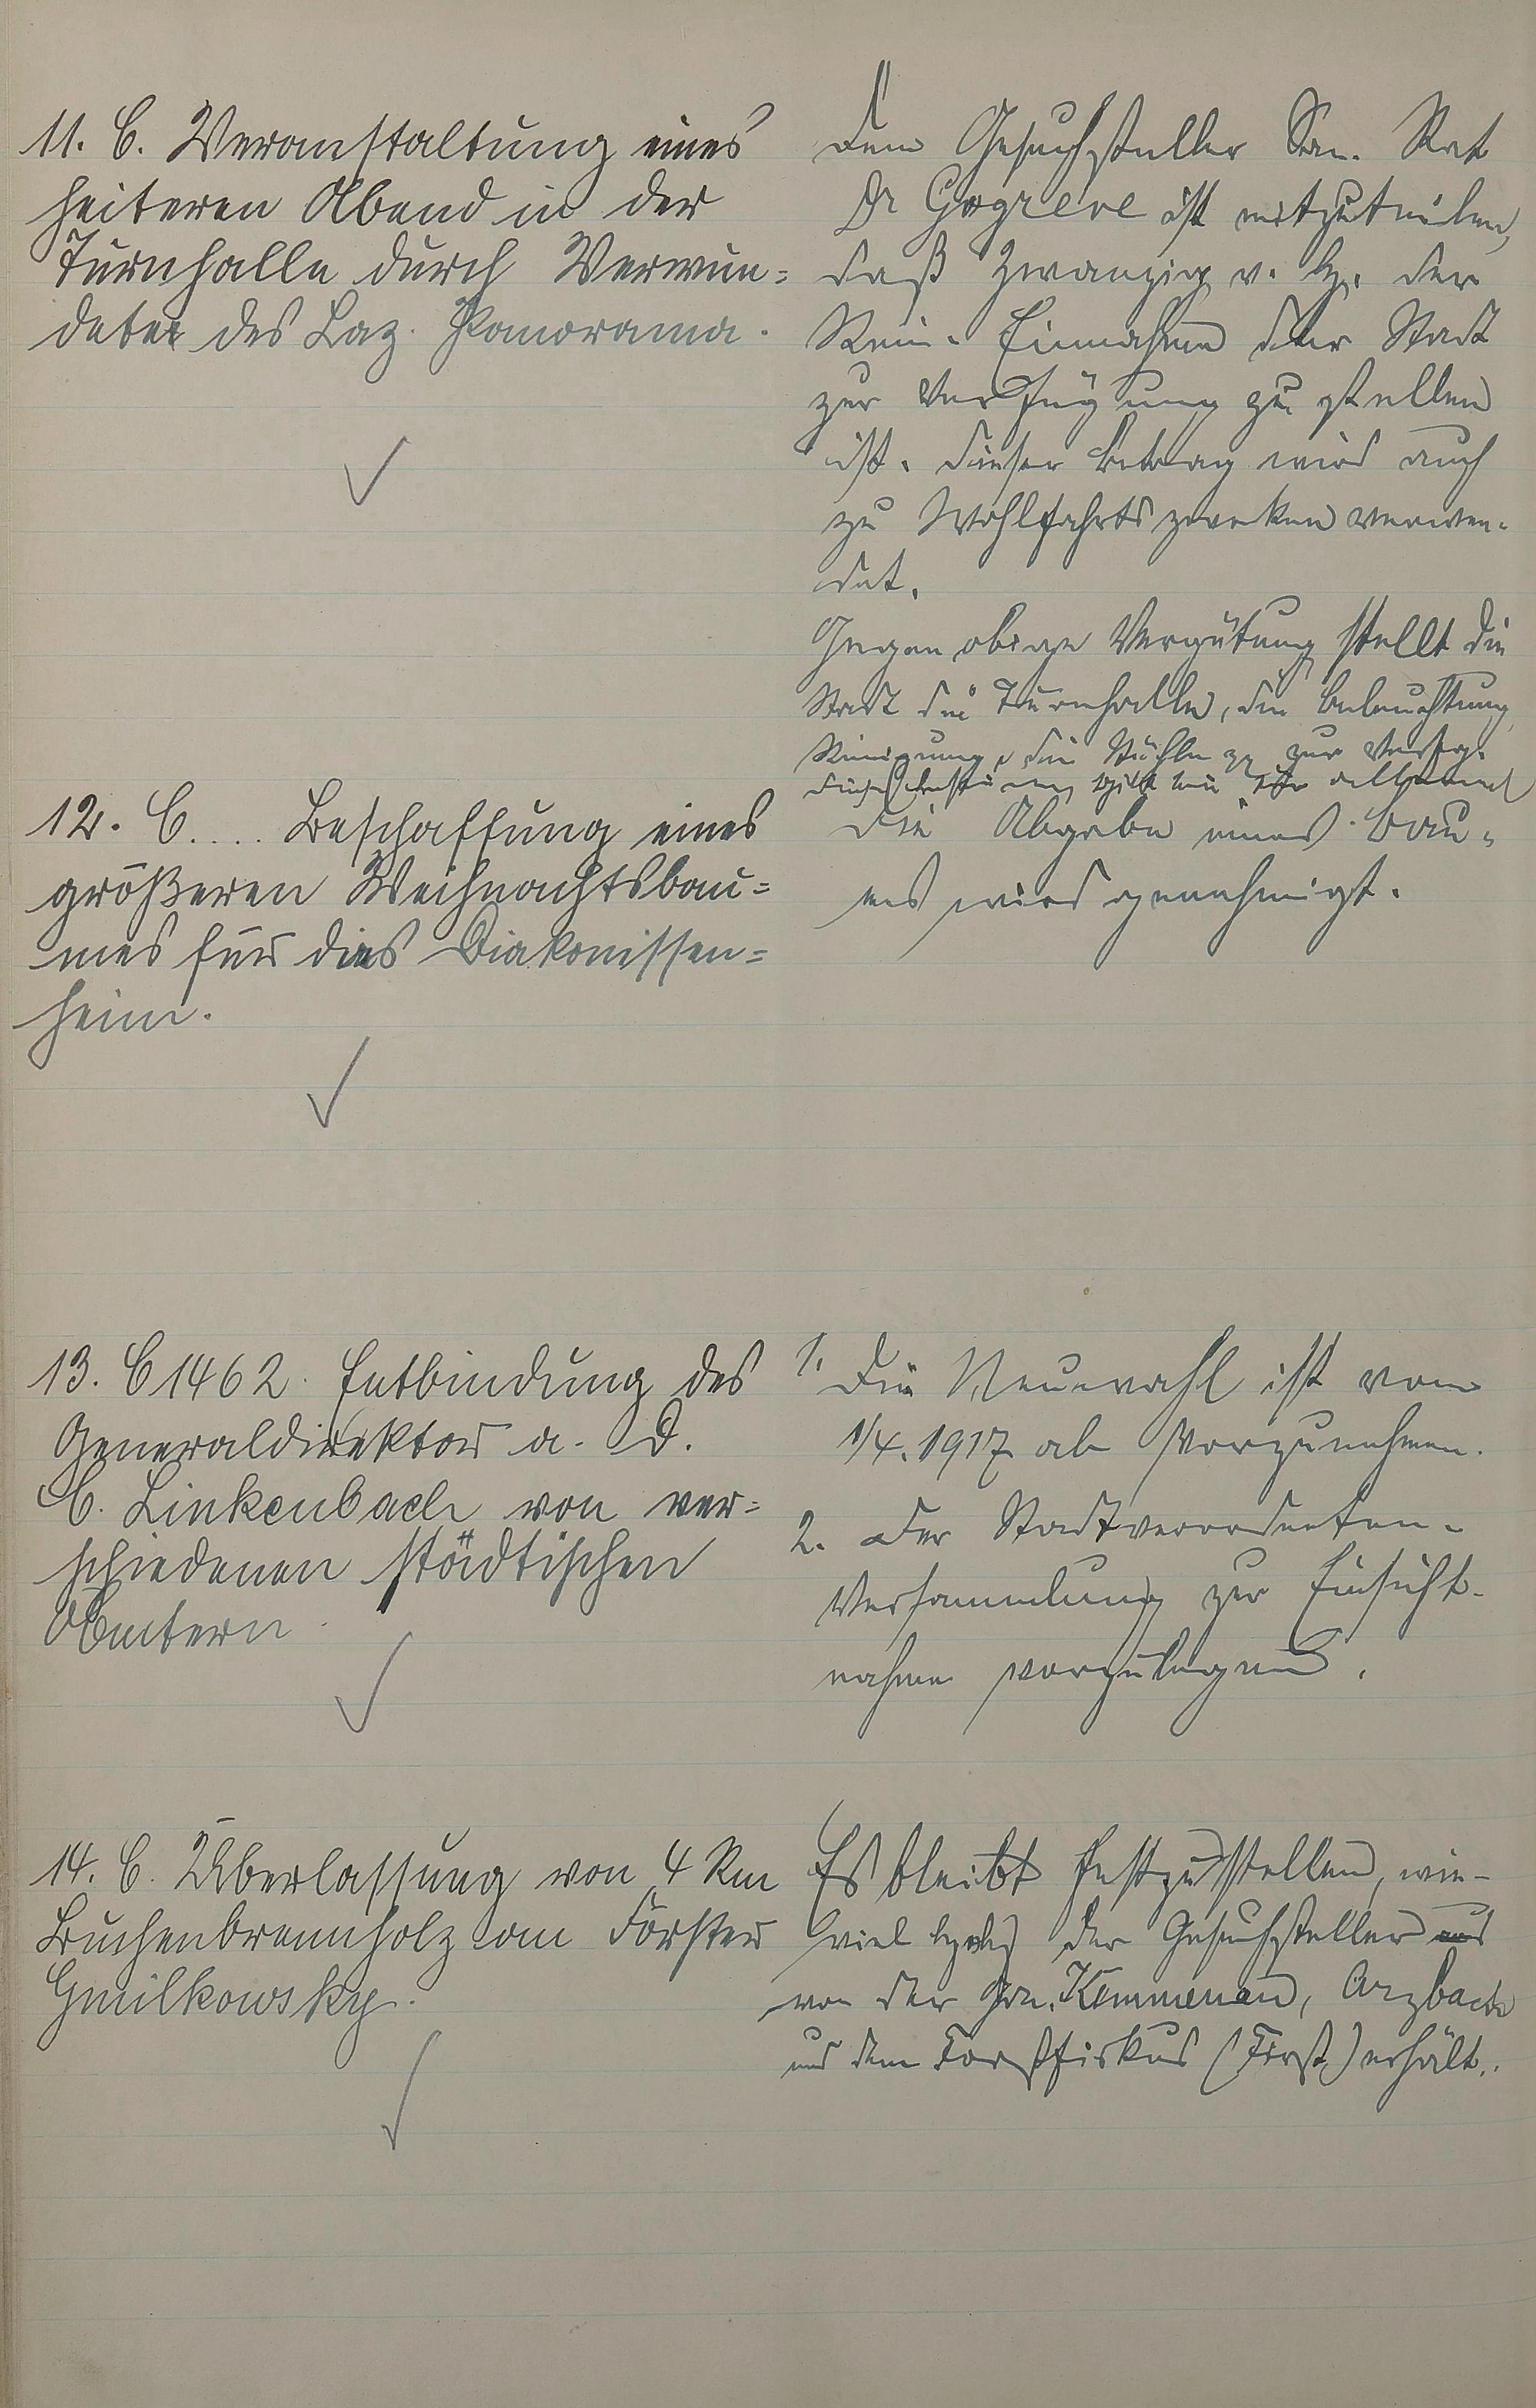 11. C. Veranstaltung eines
heiteren Abend in der
Turnhalle durch Verwun=
deter des Laz. Panorama.
Dem Gesuchsteller San. Rat
Dr Gogreve ist mitzuteilen,
daß Zwanzig v. H. der
Rein-Einnahme der Stadt
zur Verfügung zu stellen
ist. Dieser Betrag wird auch
zu Wohlfahrtszwecken verwen-
det.
Gegen obige Vergütung stellt die
Stadt die Turnhalle, die Beleuchtung
Reinigung, die Stühle pp zur Verfüg.
12. C.... Beschaffung eines
größeren Weihnachtsbau=
mes für das Diakonissen=
heim.
Die Abgabe eines Bau-
mes wird genehmigt.
13. C 1462. Entbindung des
Generaldirektors a. D.
C. Linkenbach von ver=
schiedenen städtischen
Ämtern.
1. Die Neuwahl ist vom
1/4. 1917 ab vorzunehmen.
2. Der Stadtverordneten-
Versammlung zur Einsicht-
nahme vorzulegen.
14. C. Überlassung von 4 Rm
Buchenbrennholz am Förster
Gmilkowsky.
Es bleibt festzustellen, wie-
viel Holz der Gesuchsteller
von der Gem. Kemmenau, Arzbach
und dem Forstfiskus (Forst) erhält.